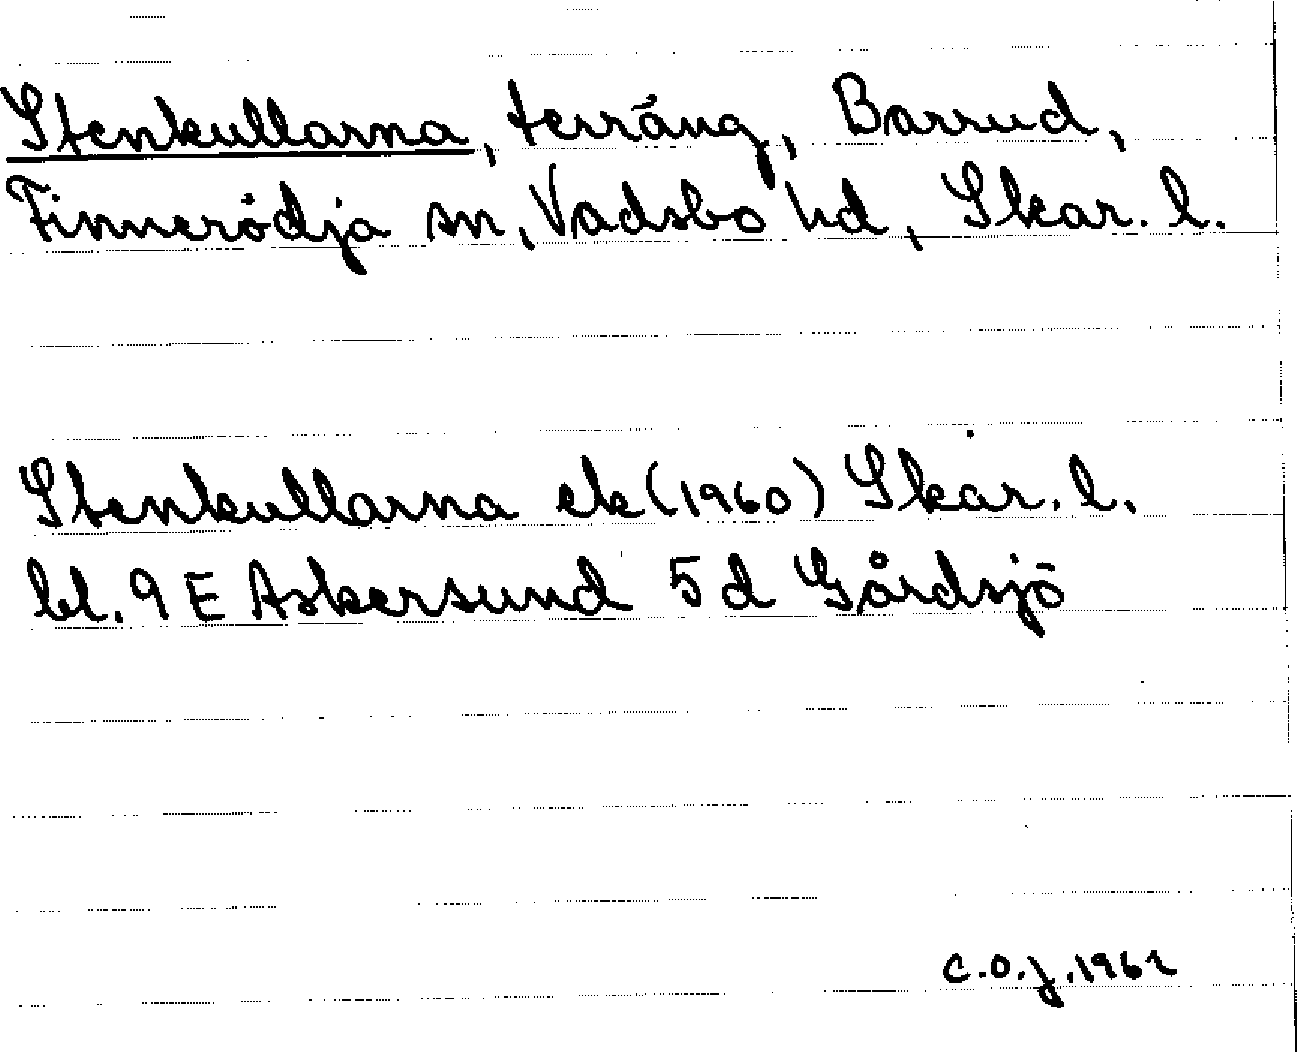 Stenkullarna, terräng, Barrud,
Finnerödja sn, Vadsbo hd, Skar. l.
Stenkullarna ek (1960) Skar. l.
bl. 9 E Askersund 5 d Gårdsjö
C.O.J. 1962